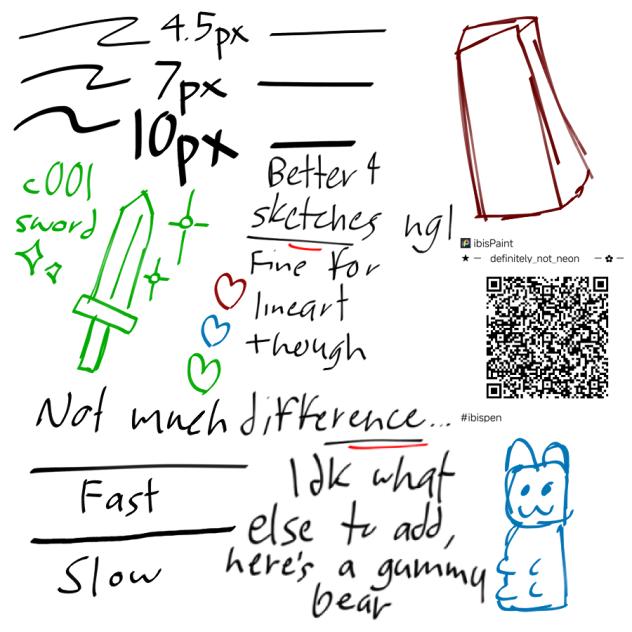 4.5px
7px
10px
c00l
sword
Better 4
sketches ngl
Fine for
lineart
though
ibisPaint
★ — definitely_not_neon — ✿ —
#ibispen
Not much difference...
Fast
Slow
Idk what
else to add,
here's a gummy
bear